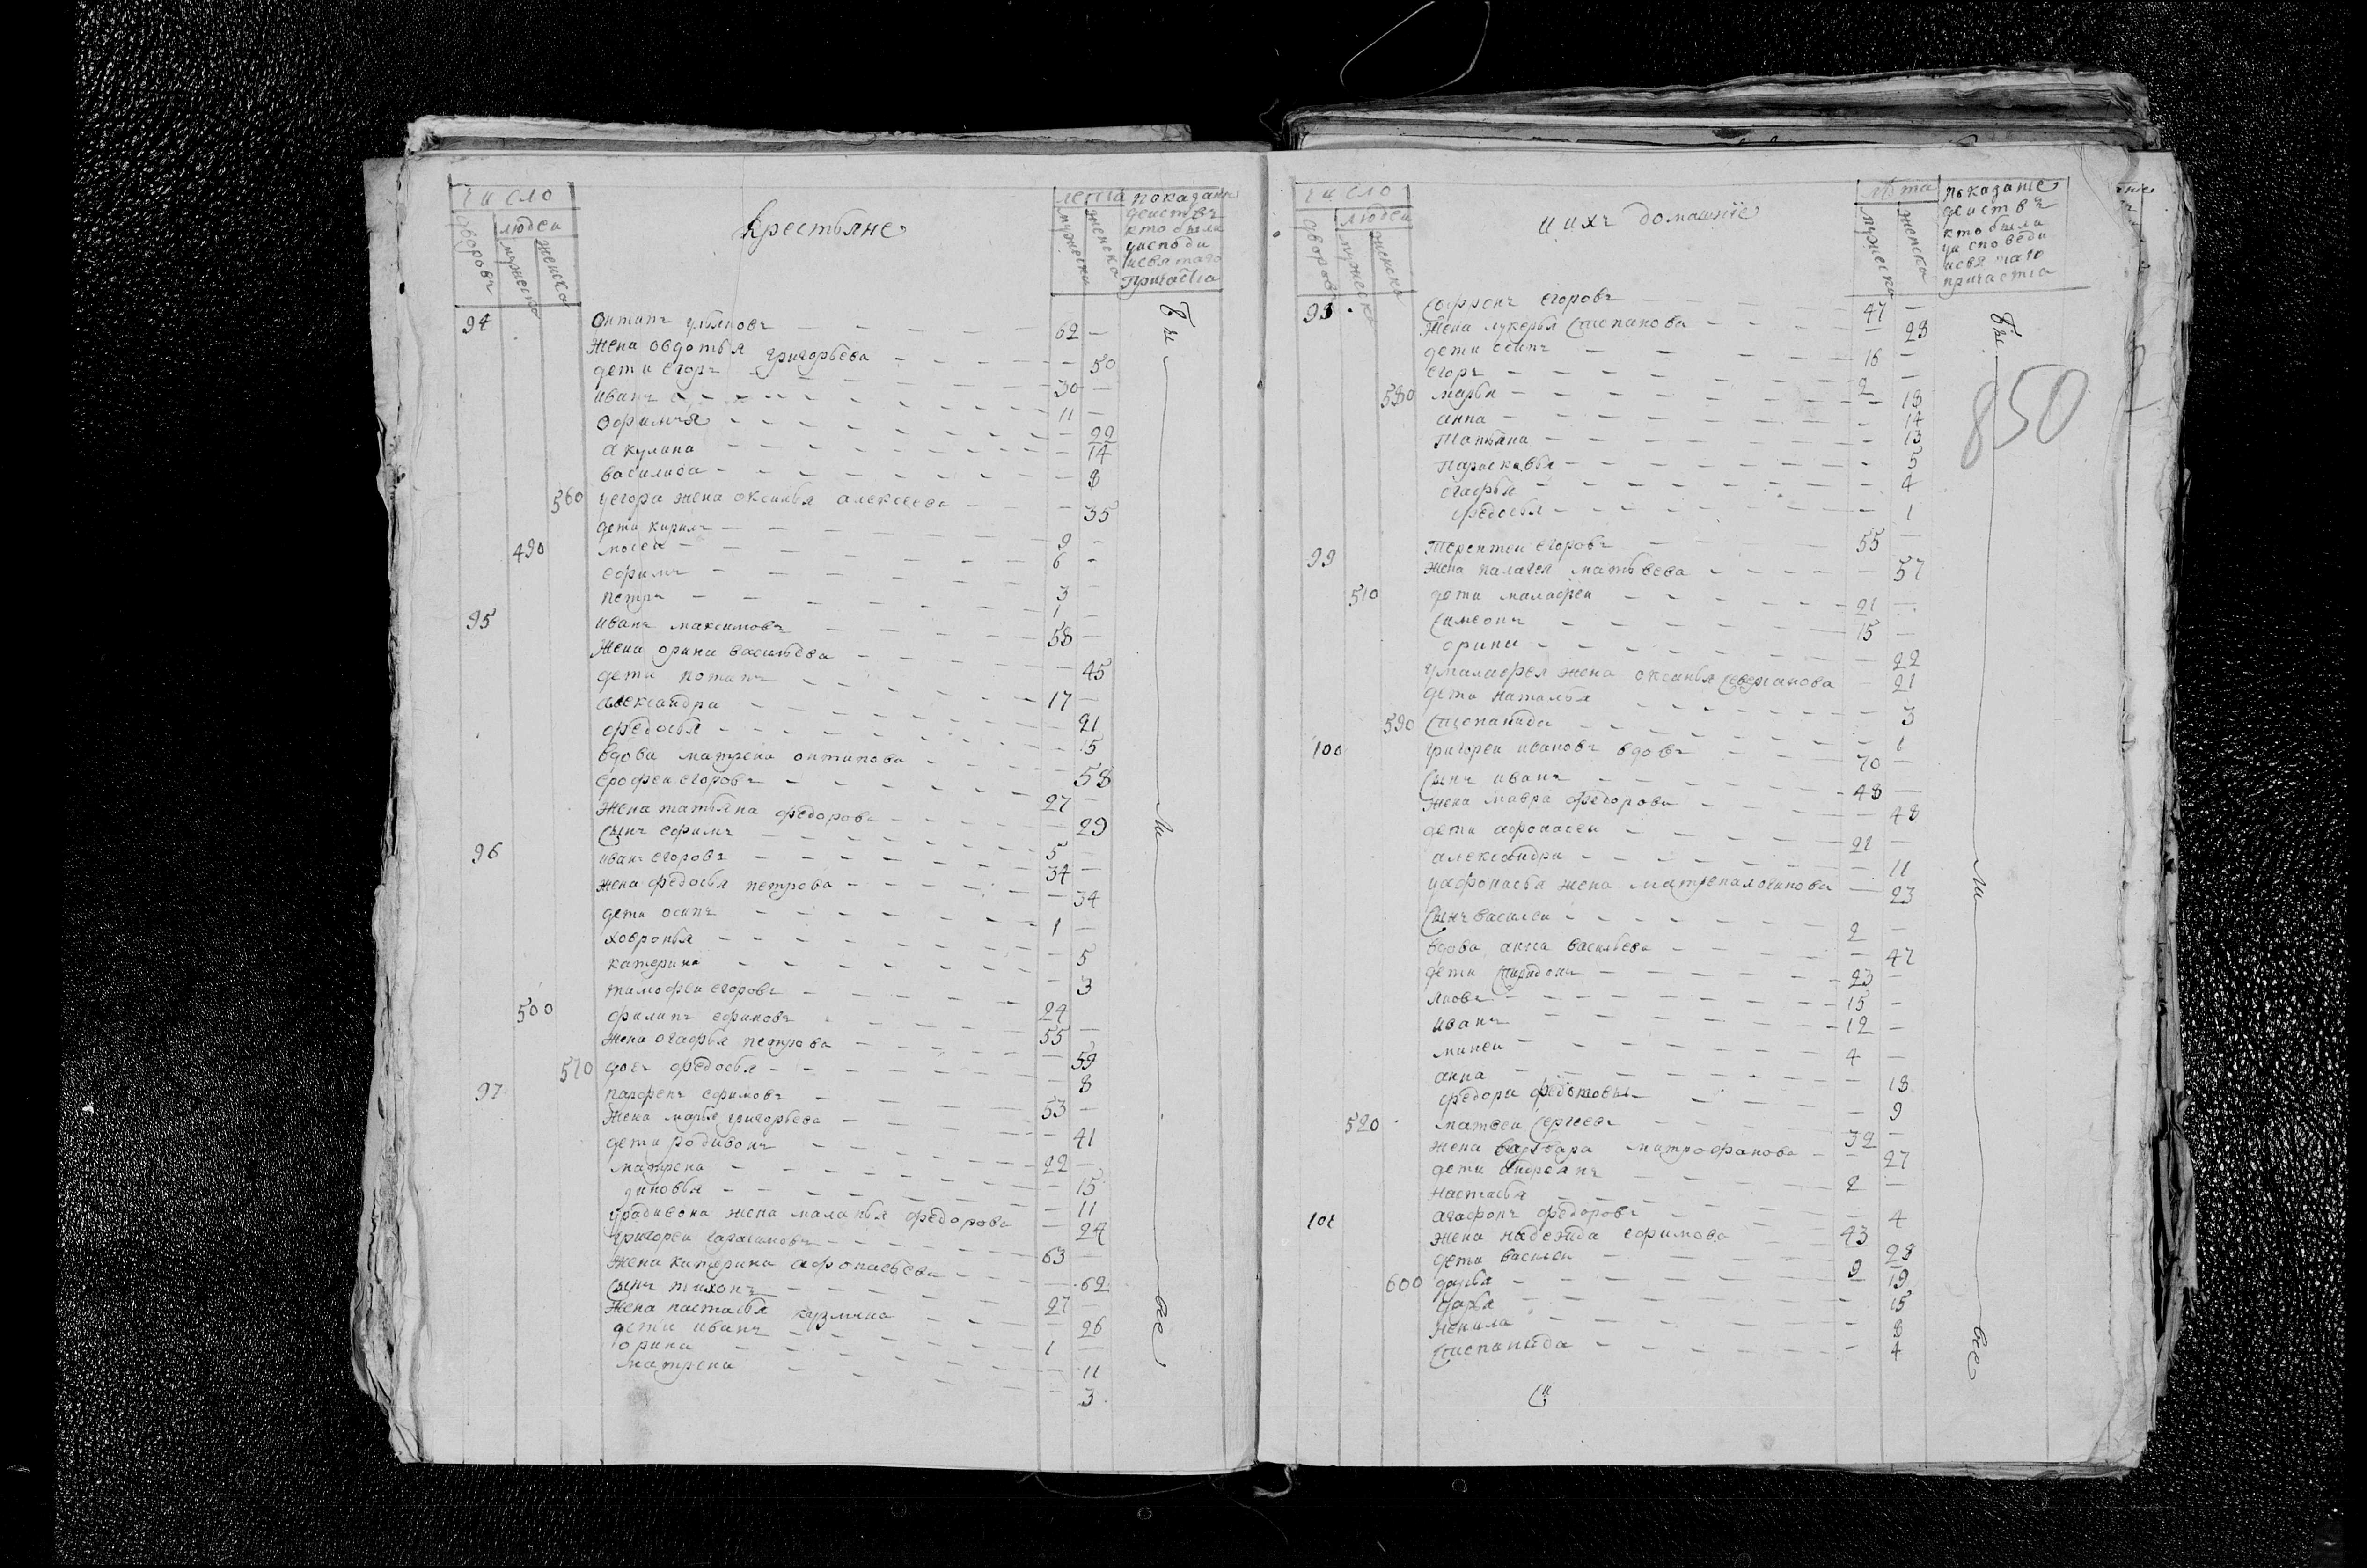 число
дворовъ
людеи
мужеска
женска
крестьяне
лета
мужеска
женска
показание
деиствъ
кто были
уисповеди
исвятаго
причастiа
94 онтипъ ульяновъ 62
жена овдотья григорьева 50
дети егоръ 30
иванъ 11
офимъя 22
акулина 14
василиса 8
560 уегора жена оксинья алексеева 35
дети кирилъ 9
490 мосеи 6
ефимъ 3
петръ 1
95 иванъ максимовъ 58
жена орина васильева 45
дети потапъ 17
александра 21
федосья 15
вдова матрена онтипова 58
ерофеи егоровъ 27
жена татьяна федорова 29
сынъ ефимъ 5
96 иванъ егоровъ 34
жена федосья петрова 34
дети осипъ 1
ховронья 5
катерина 3
тимофеи егоровъ 24
500 филипъ ефимовъ 55
жена огафья петрова 59
570 дочь федосья 8
97 парфенъ ефимовъ 53
жена марья григорьева 41
дети родивонъ 22
матрена 15
зиновья 11
уродивона жена маланья федорова 24
григореи гарасимовъ 63
жена катерина афонасьева 62
сынъ тихонъ 27
жена настасья кузмина 26
дети иванъ 1
орина 11
матрена 3
Бы
ли
все
число
дворовъ
людеи
мужеска
женска
и ихъ домашнiе
лета
мужеска
женска
показанiе
деиствъ
кто были
уисповеди
исвятаго
причастiа
850
98 софронъ егоровъ 47
жена лукерья степанова 28
дети осипъ 16
егоръ 2
580 марья 18
анна 14
татьяна 13
параскавья 5
огафья 4
федосья 1
99 терентеи егоровъ 55
жена палагея матвеева 57
510 дети малафеи 21
симеонъ 15
орина 22
умалафея жена оксинья 21
дети наталья 3
590 степанида 1
100 григореи ивановъ вдовъ 70
сынъ иванъ 48
жена мавра федорова 48
дети афонасеи 21
александра 11
уафонасья жена матрена логинова 23
сынъ василеи 2
вдова анна васильева 47
дети спиридонъ 23
яковъ 15
иванъ 12
минеи 4
анна 18
федора федотова 9
520 матвеи сергеевъ 32
жена варвара митрофанова 27
дети андреянъ 2
настасья 4
101 агафонъ федоровъ 43
жена надежда ефимова 28
дети василеи 9
600 дарья 19
дарья 15
ненила 8
степанида 4
Бы
ли
все